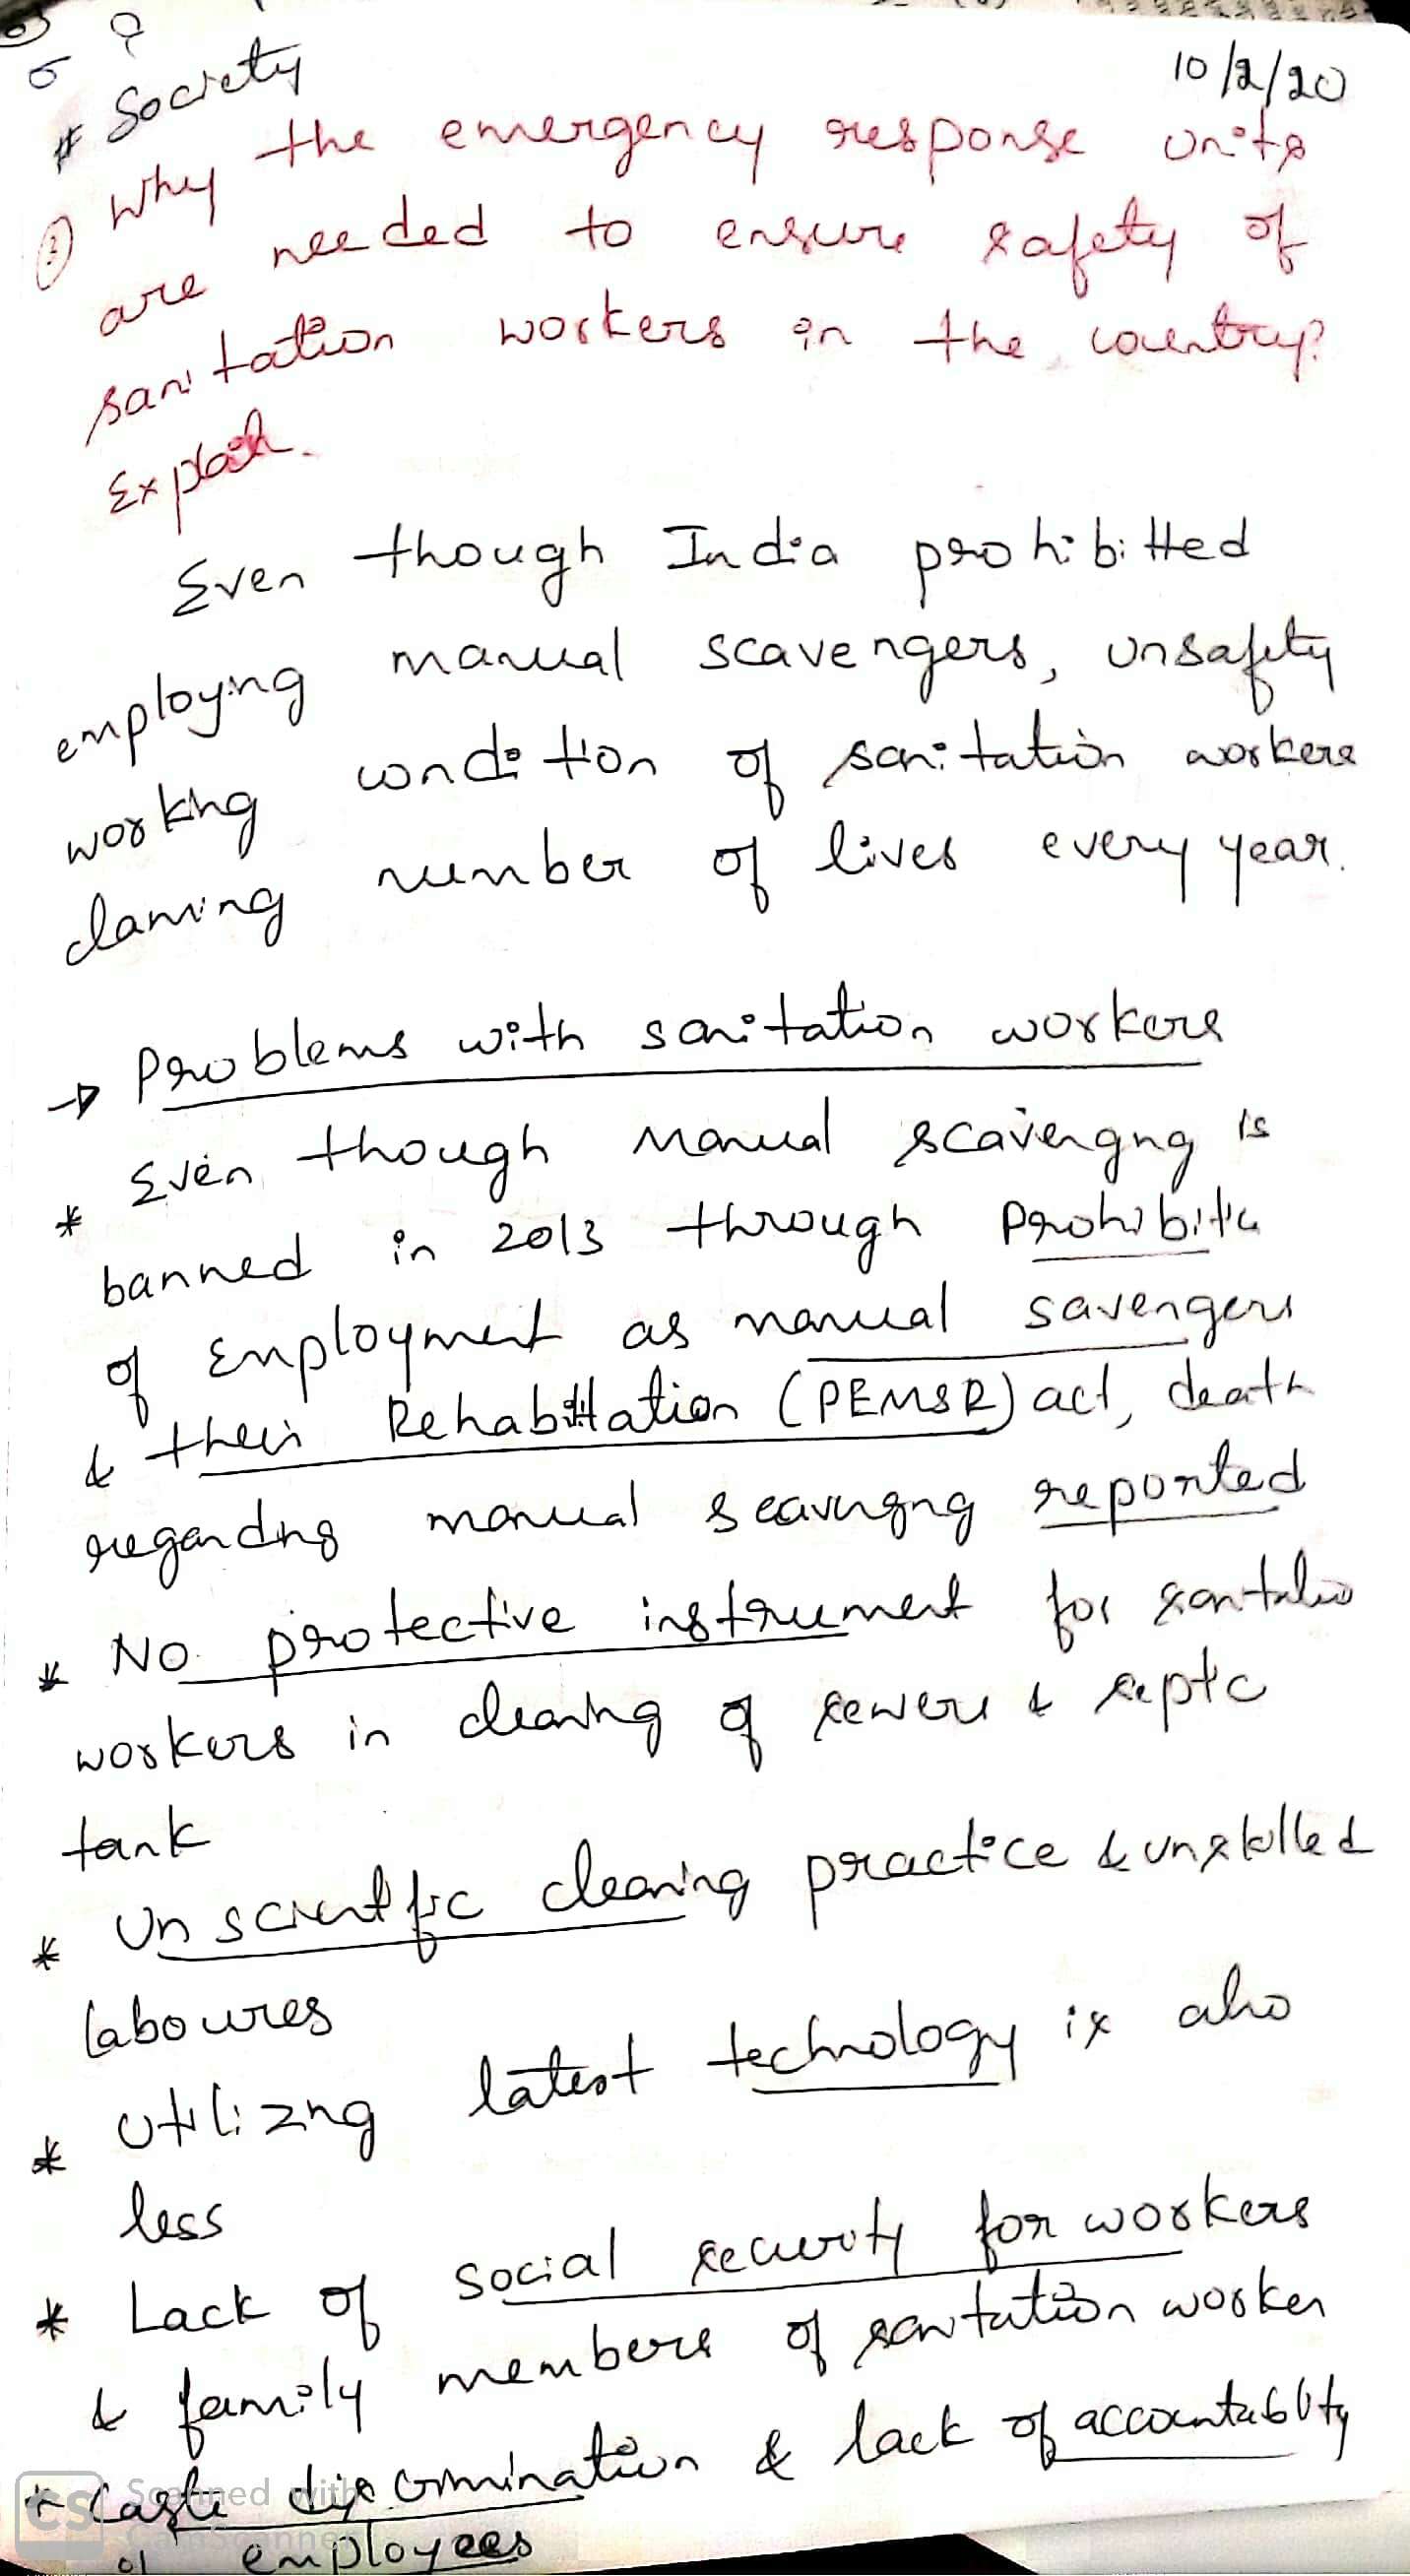 # Society
10/2/20
Why the emergency response units
are needed to ensure safety of
sanitation workers in the country?
Explain.
Even though India prohibitted
employing manual scavengers, unsafety
working condition of sanitation workers
claming number of lives every year.
→ Problems with sanitation workers
* Even though Manual scavenging is
banned in 2013 through Prohibitin
of Employment as manual savengers
& their Rehabilitation (PEMSR) act, death
regarding manual scavenging reported
* No protective instrument for sanitation
workers in cleaning of sewers & septic
tank
* Unscientific cleaning practice & unskilled
laboures
* Utilizing latest technology is also
less
* Lack of social security for workers
& family members of sanitation worker
* Caste discrimination & lack of accountability
of employees
CS Scanned with
CamScanner